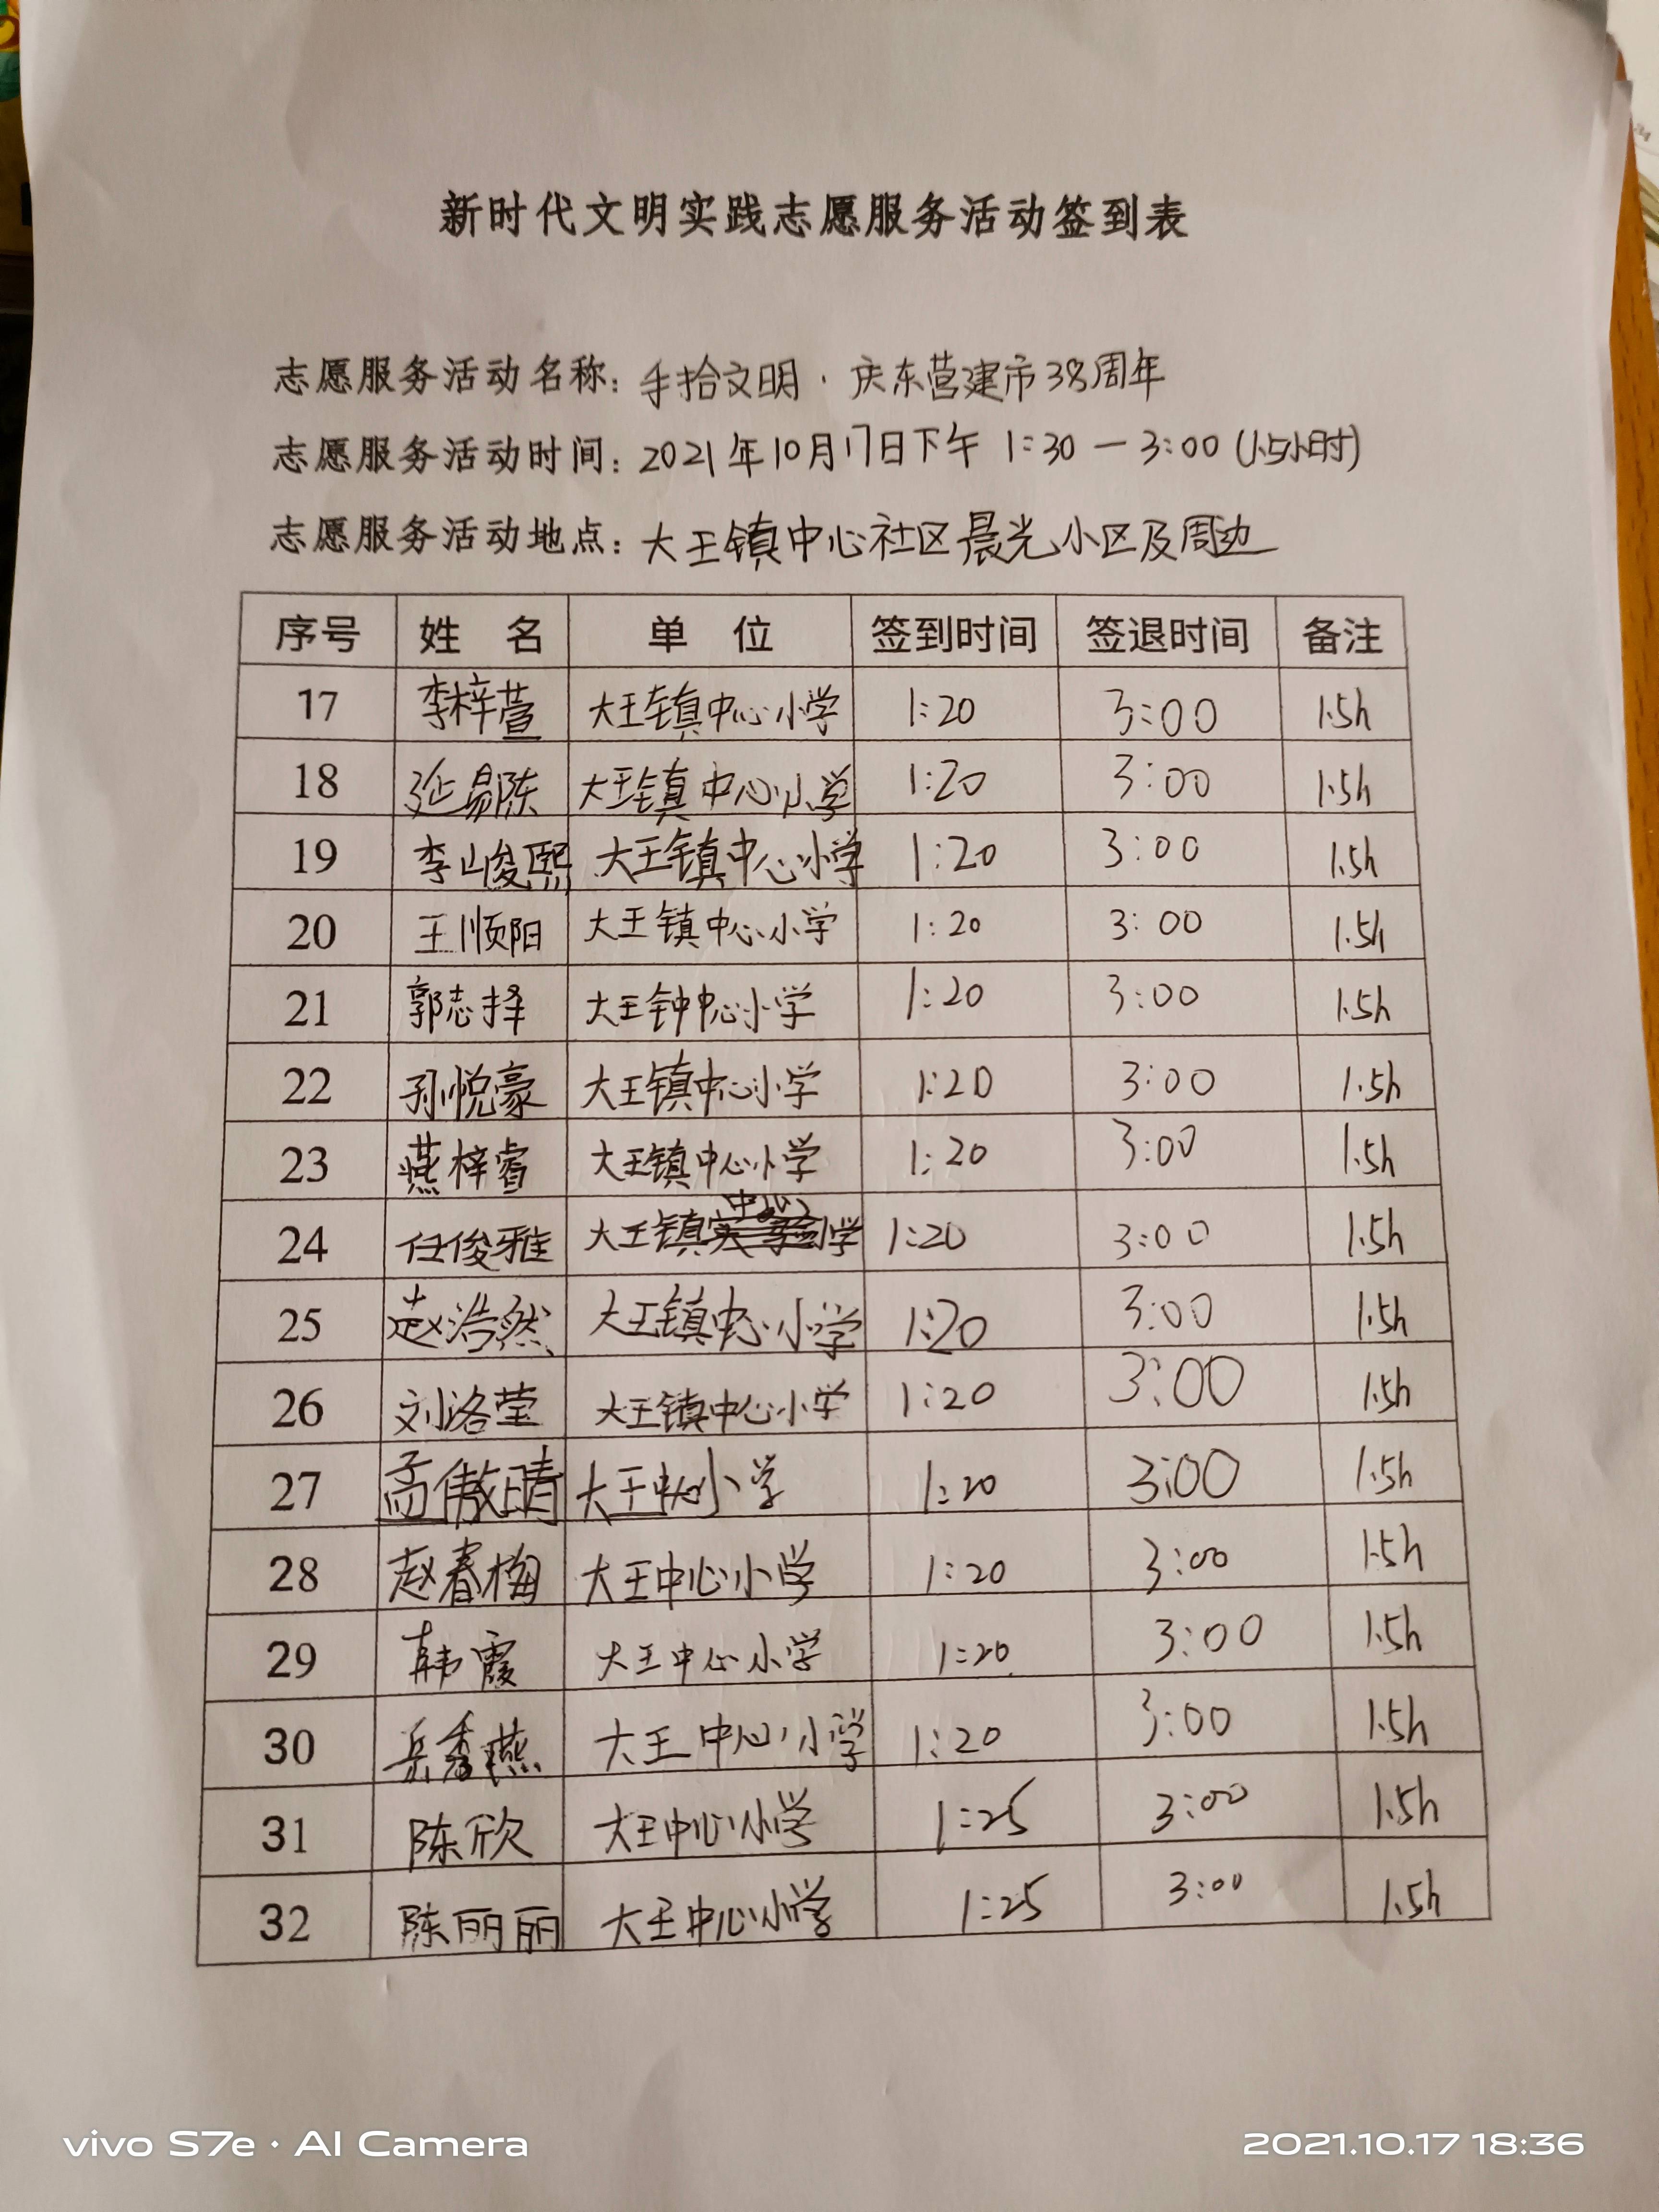 新时代文明实践志愿服务活动签到表
志愿服务活动名称：手拾文明·庆东营建市38周年
志愿服务活动时间：2021年10月17日下午 1:30－3:00(1.5小时)
志愿服务活动地点：大王镇中心社区晨光小区及周边
序号 姓 名 单 位 签到时间 签退时间 备注
17 李梓萱 大王镇中心小学 1:20 3:00 1.5h
18 延易陈 大王镇中心小学 1:20 3:00 1.5h
19 李峻熙 大王镇中心小学 1:20 3:00 1.5h
20 王顺阳 大王镇中心小学 1:20 3:00 1.5h
21 郭志择 大王钟中心小学 1:20 3:00 1.5h
22 孙悦豪 大王镇中心小学 1:20 3:00 1.5h
23 燕梓睿 大王镇中心小学 1:20 3:00 1.5h
24 任俊雅 大王镇中心小学 1:20 3:00 1.5h
25 赵浩然 大王镇中心小学 1:20 3:00 1.5h
26 刘洛莹 大王镇中心小学 1:20 3:00 1.5h
27 孟傲晴 大王中心小学 1:20 3:00 1.5h
28 赵春梅 大王中心小学 1:20 3:00 1.5h
29 韩霞 大王中心小学 1:20 3:00 1.5h
30 岳秀燕 大王中心小学 1:20 3:00 1.5h
31 陈欣 大王中心小学 1:25 3:00 1.5h
32 陈丽丽 大王中心小学 1:25 3:00 1.5h
vivo S7e · AI Camera
2021.10.17 18:36